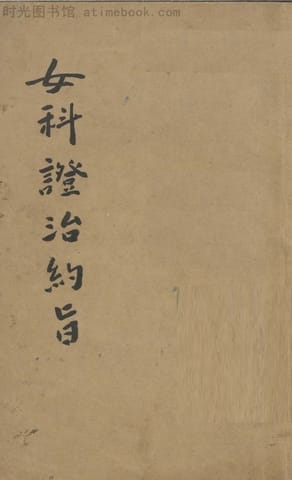 时光图书馆 - atimebook.com
女科證治約旨